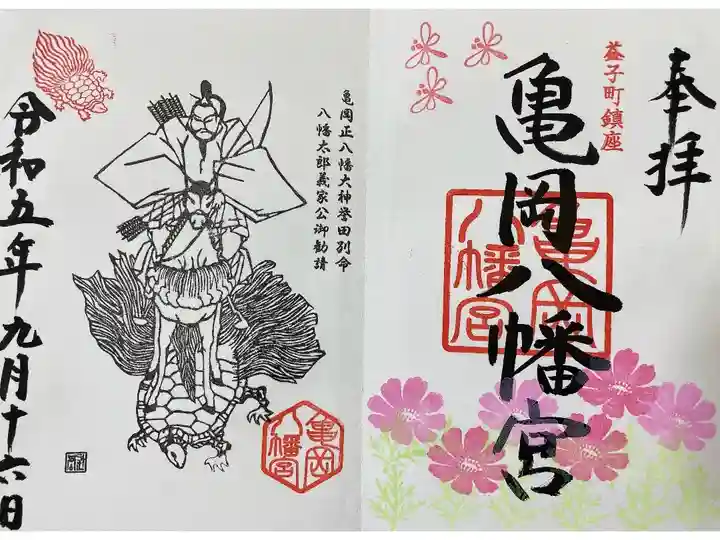 奉拝
益子町鎮座
亀岡八幡宮
亀岡
八幡宮
亀岡正八幡大神誉田別命
八幡太郎義家公御勧請
令和五年九月十六日
亀岡
八幡宮